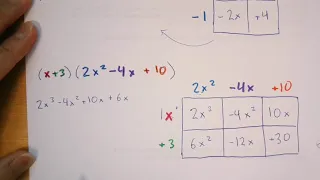 -1 -2x +4
(x+3)(2x² -4x +10)
2x³ -4x² +10x + 6x
2x² -4x +10
1x 2x³ -4x² 10x
+3 6x² -12x +30